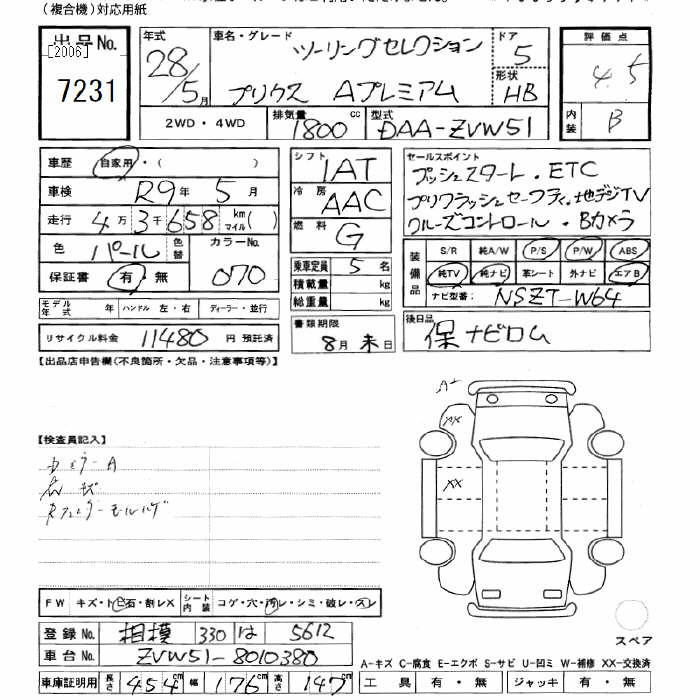 (複合機)対応用紙
出品No.
[2006]
7231
年式
28/5月
車名・グレード
ツーリングセレクション
プリウス Aプレミアム
ドア
5
形状
HB
評価点
4.5
内装
B
2WD・4WD
排気量
1800 cc
型式
DAA-ZVW51
車歴 自家用・( )
車検 R9年 5月
走行 4万3千658 km マイル( )
色 パール 色替
カラーNo.
070
保証書 有・無
モデル年式 年 ハンドル 左・右 ディーラー・並行
リサイクル料金 11480 円 預託済
シフト
1AT
冷房
AAC
燃料
G
乗車定員 5 名
積載量 kg
総重量 kg
書類期限
8月末日
セールスポイント
プッシュスタート・ETC
プリクラッシュセーフティ・地デジTV
クルーズコントロール・Bカメラ
装備品
S/R 純A/W P/S P/W ABS
純TV 純ナビ 革シート 外ナビ エアB
ナビ型番: NSZT-W64
後日品
保 ナビロム
【出品店申告欄(不良箇所・欠品・注意事項等)】
【検査員記入】
A
A
XX
XX
FW キズ・トビ石・割レX
シート内装 コゲ・穴・汚レ・シミ・破レ・スレ
登録No. 相模 330 は 5612
車台No. ZVW51-8010380
車庫証明用 長さ 454 cm 幅 176 cm 高さ 147 cm
スペア
A-キズ C-腐食 E-エクボ S-サビ U-凹ミ W-補修 XX-交換済
工具 有・無 ジャッキ 有・無